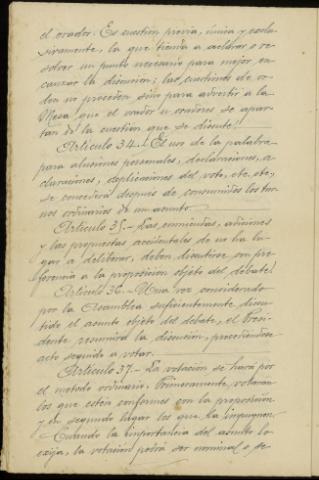 el orador. Es cuestión previa, única y exclu-
sivamente, la que tienda a aclarar o re-
solver un punto necesario para mejor en-
cauzar la discusión; las cuestiones de or-
den no proceden sino para advertir a la
Mesa que el orador u oradores se apar-
tan de la cuestión que se discute.
Artículo 34.- El uso de la palabra
para alusiones personales, declaraciones, a-
claraciones, explicaciones del voto, etc. etc,
se concederá después de consumidos los tur-
nos ordinarios de un asunto.
Artículo 35.- Las enmiendas, adiciones
y las propuestas accidentales de no ha lu-
gar a deliberar, deben discutirse con pre-
ferencia a la proposición objeto del debate.
Artículo 36.- Una vez considerado
por la Asamblea suficientemente discu-
tido el asunto objeto del debate, el Presi-
dente resumirá la discusión, procediéndose
acto seguido a votar.
Artículo 37.- La votación se hará por
el metodo ordinario. Primeramente, votaran
los que estén conformes con la proposición
y en segundo lugar los que la impugnen.
Cuando la importancia del asunto lo
exija, la votación podrá ser nominal o se-